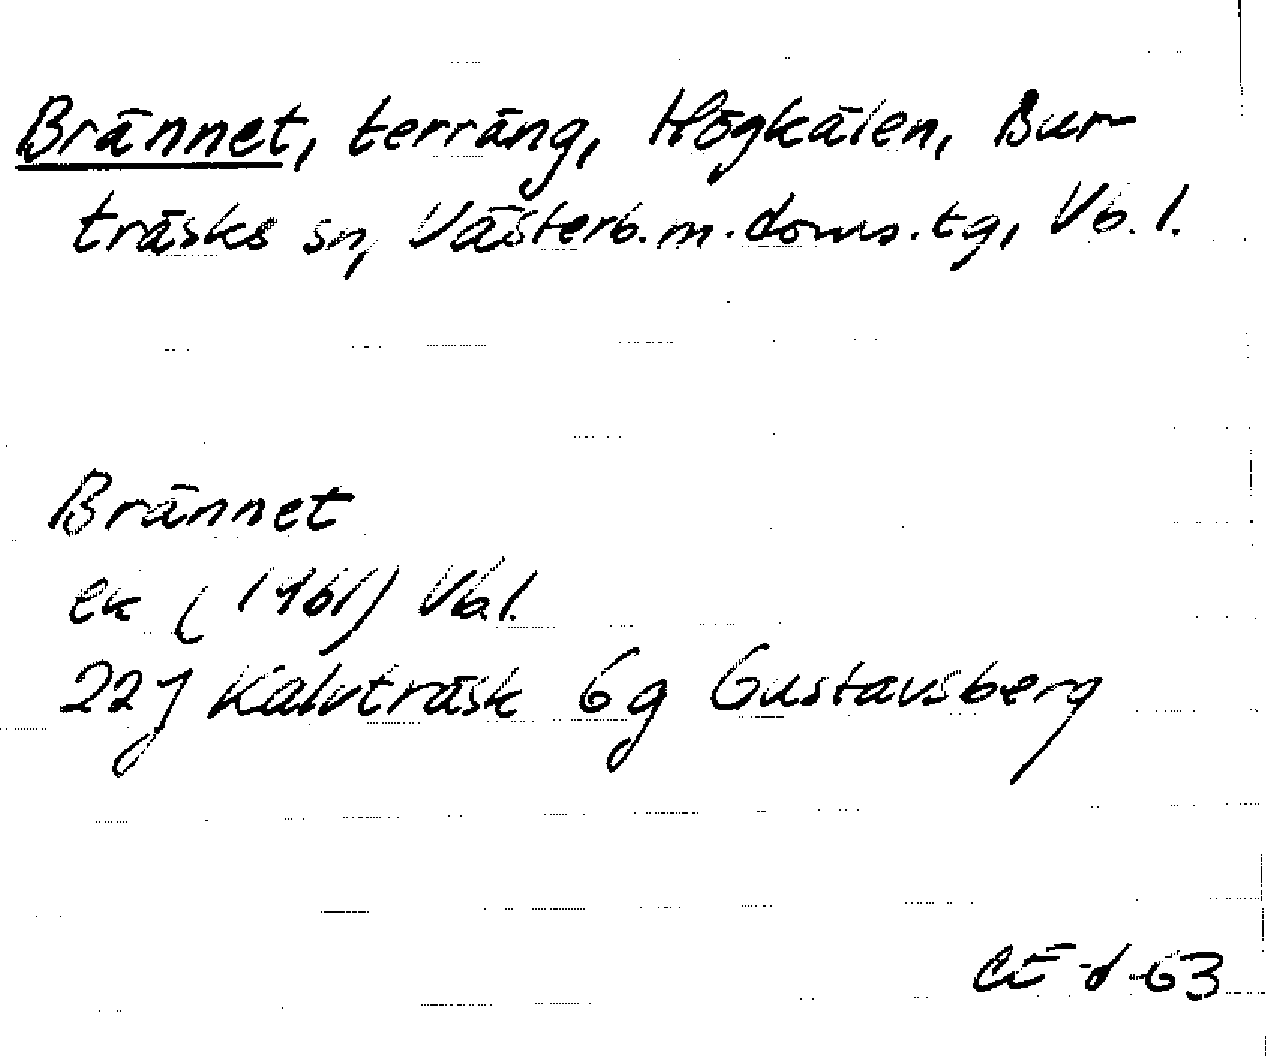 Brännet, terräng, Högkälen, Bur-
träsks sn, Västerb.m.doms.tg, Vb.l.
Brännet
ek (1961) Vb.l.
22J Kalvträsk 6g Gustavsberg
CE-d-63